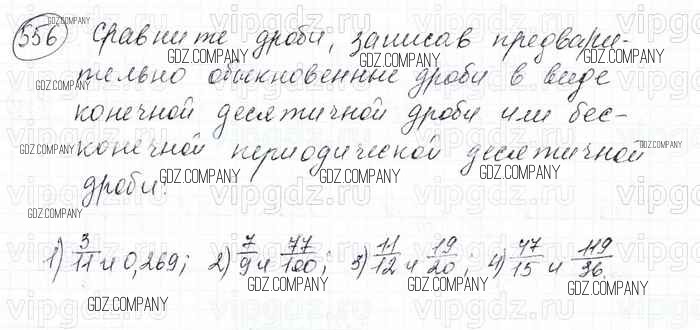 556 Сравните дроби, записав предвари-
тельно обыкновенные дроби в виде
конечной десятичной дроби или бес-
конечной периодической десятичной
дроби:
1) 3/11 и 0,269; 2) 7/9 и 77/100; 3) 11/12 и 19/20; 4) 47/15 и 119/36.
GDZ.COMPANY
GDZ.COMPANY
GDZ.COMPANY
GDZ.COMPANY
GDZ.COMPANY
GDZ.COMPANY
GDZ.COMPANY
GDZ.COMPANY
GDZ.COMPANY
GDZ.COMPANY
GDZ.COMPANY
GDZ.COMPANY
GDZ.COMPANY
GDZ.COMPANY
vipgdz.ru